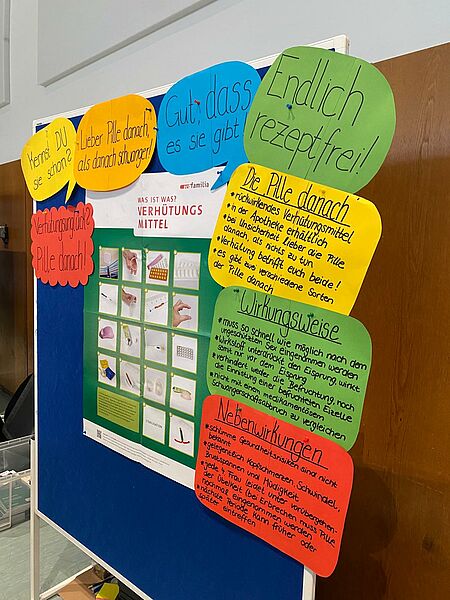 Kennst Du
sie schon?
Lieber Pille danach,
als danach schwanger!
Gut, dass
es sie gibt
Endlich
rezeptfrei!
Verhütungsunglück?
Pille danach!
profamilia
WAS IST WAS?
VERHÜTUNGS
MITTEL
Die Pille danach
• rückwirkendes Verhütungsmittel
• in der Apotheke erhältlich
• bei Unsicherheit lieber die Pille
danach, als nichts zu tun
• Verhütung betrifft euch beide!
• es gibt zwei verschiedene Sorten
der Pille danach
Wirkungsweise
• muss so schnell wie möglich nach dem
ungeschützten Sex eingenommen werden
• Wirkstoff unterdrückt den Eisprung, wirkt
somit nur vor dem Eisprung
• verhindert weder die Befruchtung, noch
die Einnistung einer befruchteten Eizelle
• nicht mit einem medikamentösem
Schwangerschaftsabbruch zu vergleichen
Nebenwirkungen
• schlimme Gesundheitsrisiken sind nicht
bekannt
• gelegentlich Kopfschmerzen, Schwindel,
Brustspannen und Müdigkeit
• jede 5. Frau leidet unter vorübergehen-
der Übelkeit (bei Erbrechen muss Pille
nochmal eingenommen werden
• nächste Periode kann früher oder
später eintreffen